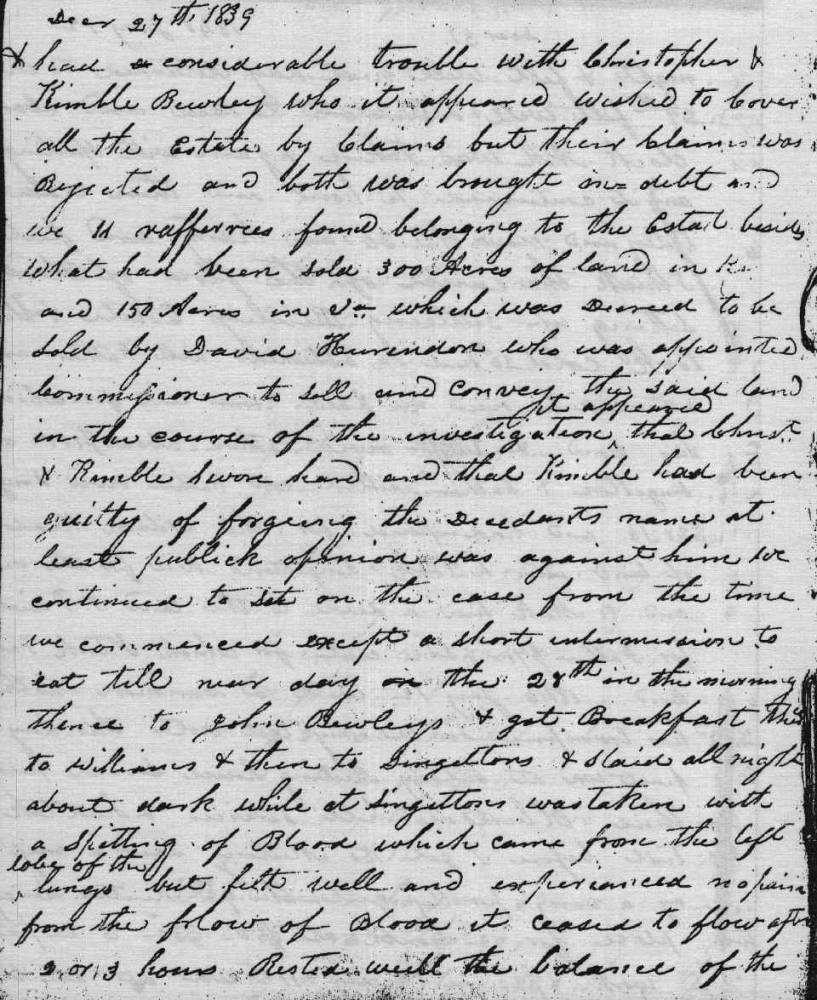 Decr 27th 1839
& had a considerable trouble with Christopher &
Kimble Bewley who it appeared wished to Cover
all the Estate by Claims but their Claims was
Rejected and both was brought in debt and
we rafferrees found belonging to the Estate besides
what had been sold 300 Acres of land in
and 150 Acres in Va which was Decreed to be
sold by David who was appointed
Commissioner to sell and convey the said land
it appeared
in the course of the investigation, that Christ.
& Kimble swore hard and that Kimble had been
guilty of forgeing the Decedants name at
least publick opinion was against him we
continued to set on the case from the time
we commenced except a short intermission to
eat till near day on the 28th in the morning
thence to John Bewleys & got Breakfast
to Williams & then to Singeltons & staid all night
about dark while at Singeltons was taken with
a Spitting of Blood which came from the left
lobe of the
lungs but felt well and experianced no pain
from the flow of Blood it ceased to flow after
2 or 3 hours Rested well the balance of the